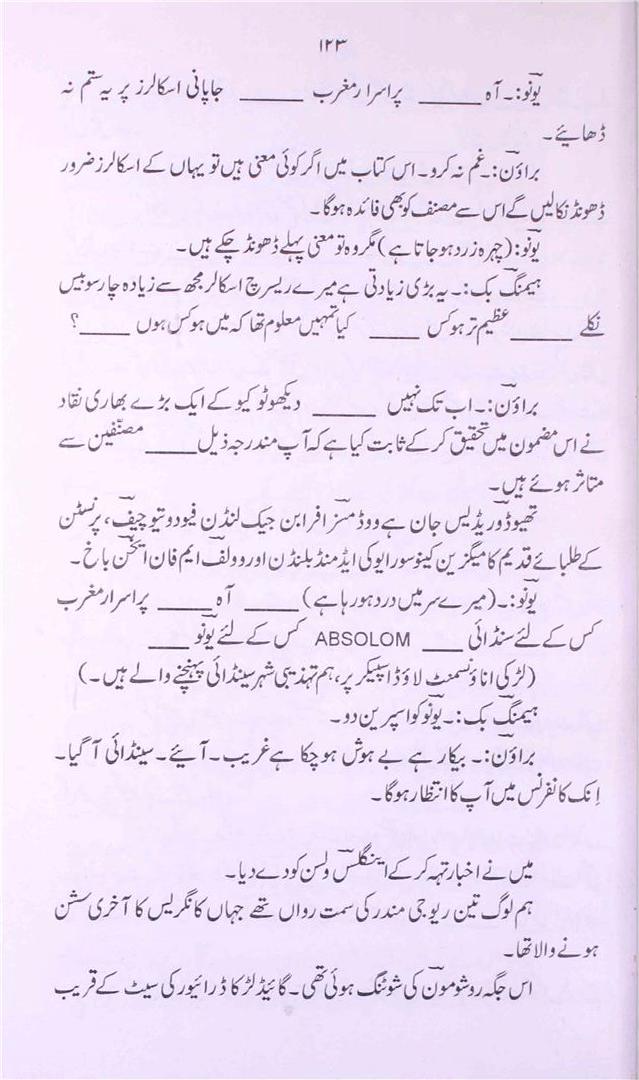 ۱۲۳
یونو:۔ آہ ______ پراسرار مغرب ______ جاپانی اسکالرز پر یہ ستم نہ
ڈھائیے۔
براؤن:۔ غم نہ کرو۔ اس کتاب میں اگر کوئی معنی ہیں تو یہاں کے اسکالرز ضرور
ڈھونڈ نکالیں گے اس سے مصنف کو بھی فائدہ ہوگا۔
یونو:۔ (چہرہ زرد ہو جاتا ہے) مگر وہ تو معنی پہلے ڈھونڈ چکے ہیں۔
ہیمنگ بک:۔ یہ بڑی زیادتی ہے میرے ریسرچ اسکالر مجھ سے زیادہ چار سو بیس
نکلے ______ عظیم تر ہوکس _____ کیا تمہیں معلوم تھا کہ میں ہوکس ہوں _____؟
براؤن:۔ اب تک نہیں ______ دیکھو ٹوکیو کے ایک بڑے بھاری نقاد
نے اس مضمون میں تحقیق کر کے ثابت کیا ہے کہ آپ مندرجہ ذیل _____ مصنّفین سے
متاثر ہوئے ہیں۔
تھیوڈور یڈیس جان ہے ووڈ مسز افرابن جیک لنڈن فیودو تیوچیف، پرنسٹن
کے طلبائے قدیم کا میگزین کینو سورایو کی ایڈمنڈ بلنڈن اور وولف ایم فان ایخن باخ۔
یونو:۔ (میرے سر میں درد ہو رہا ہے) _____ آہ _____ پراسرار مغرب
کس کے لئے سنڈائی ____ ABSOLOM کس کے لئے یونو ____
(لڑکی اناؤنسمنٹ لاؤڈ اسپیکر پر، ہم تہذیبی شہر سینڈائی پہنچنے والے ہیں۔)
ہیمنگ بک:۔ یونو کو اسپرین دو۔
براؤن:۔ بیکار ہے بے ہوش ہو چکا ہے غریب۔ آئیے۔ سینڈائی آ گیا۔
اِنک کانفرنس میں آپ کا انتظار ہوگا۔
میں نے اخبار تہہ کر کے اینگلس ولسن کو دے دیا۔
ہم لوگ تین ریوجی مندر کی سمت رواں تھے جہاں کانگریس کا آخری سشن
ہونے والا تھا۔
اس جگہ روشومون کی شوٹنگ ہوئی تھی۔ گائیڈ لڑکا ڈرائیور کی سیٹ کے قریب